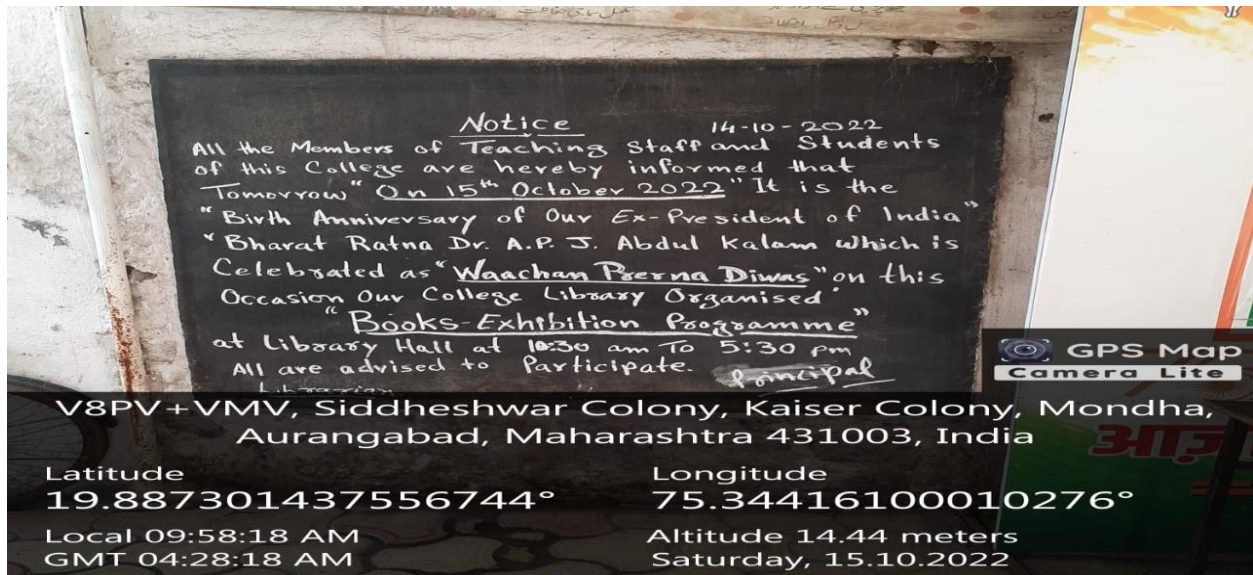 Notice
14-10-2022
All the Members of Teaching Staff and Students
of this College are hereby informed that
Tomorrow "On 15th October 2022" It is the
"Birth Anniversary of Our Ex-President of India"
"Bharat Ratna Dr. A.P.J. Abdul Kalam which is
Celebrated as "Waachan Prerna Diwas" on this
Occasion Our College Library Organised'
"Books-Exhibition Programme"
at Library Hall at 10:30 am To 5:30 pm
All are advised to Participate.
Principal
Librarian
GPS Map
Camera Lite
V8PV+VMV, Siddheshwar Colony, Kaiser Colony, Mondha,
Aurangabad, Maharashtra 431003, India
आज़
Latitude
19.887301437556744°
Longitude
75.34416100010276°
Local 09:58:18 AM
GMT 04:28:18 AM
Altitude 14.44 meters
Saturday, 15.10.2022